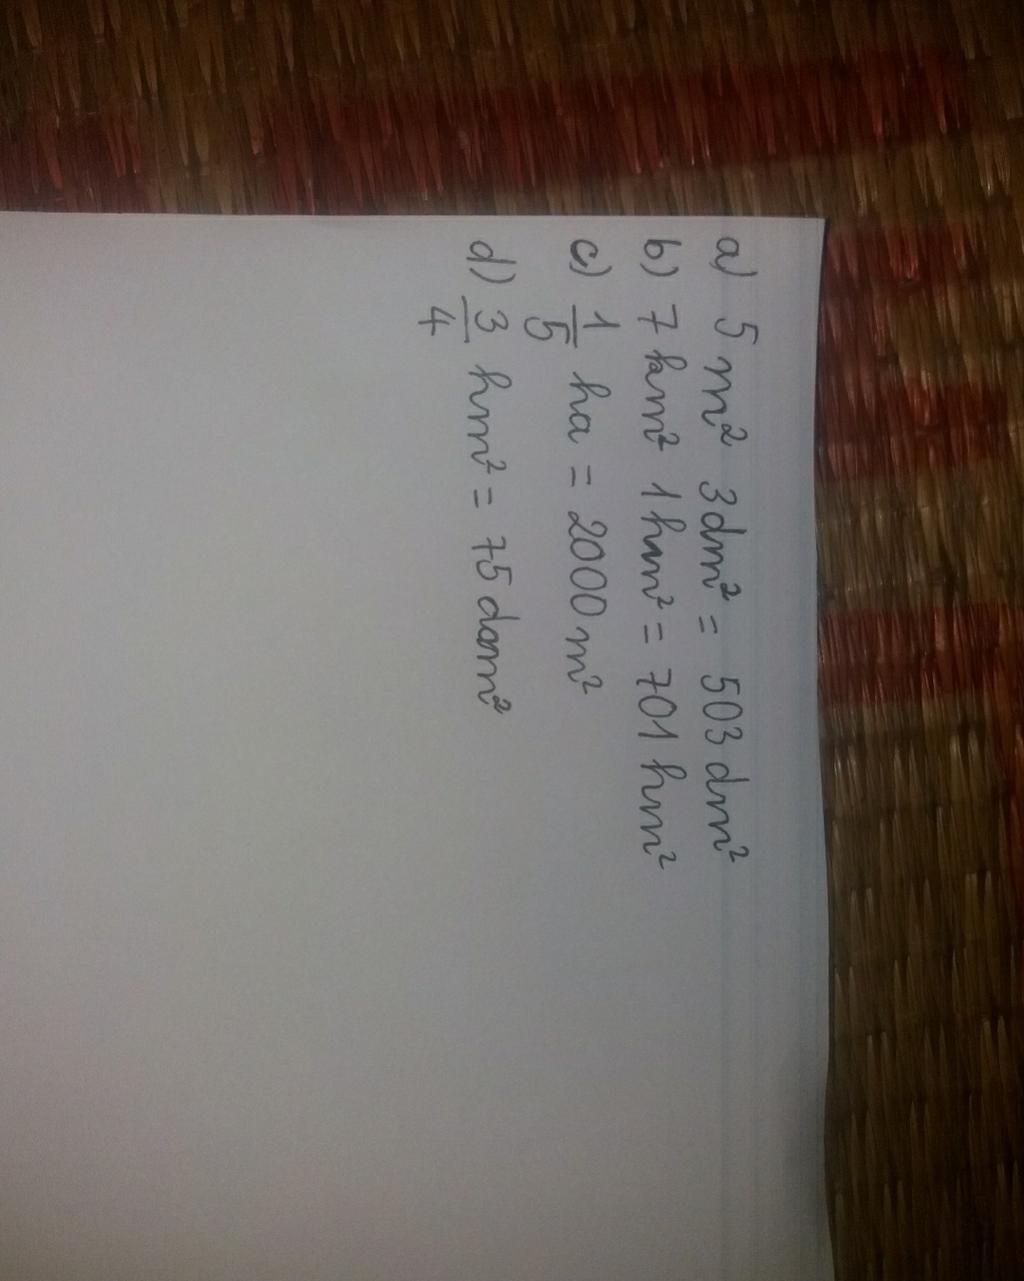 a) 5 m² 3dm² = 503 dm²
b) 7 km² 1 hm² = 701 hm²
c) 1/5 ha = 2000 m²
d) 3/4 hm² = 75 dam²